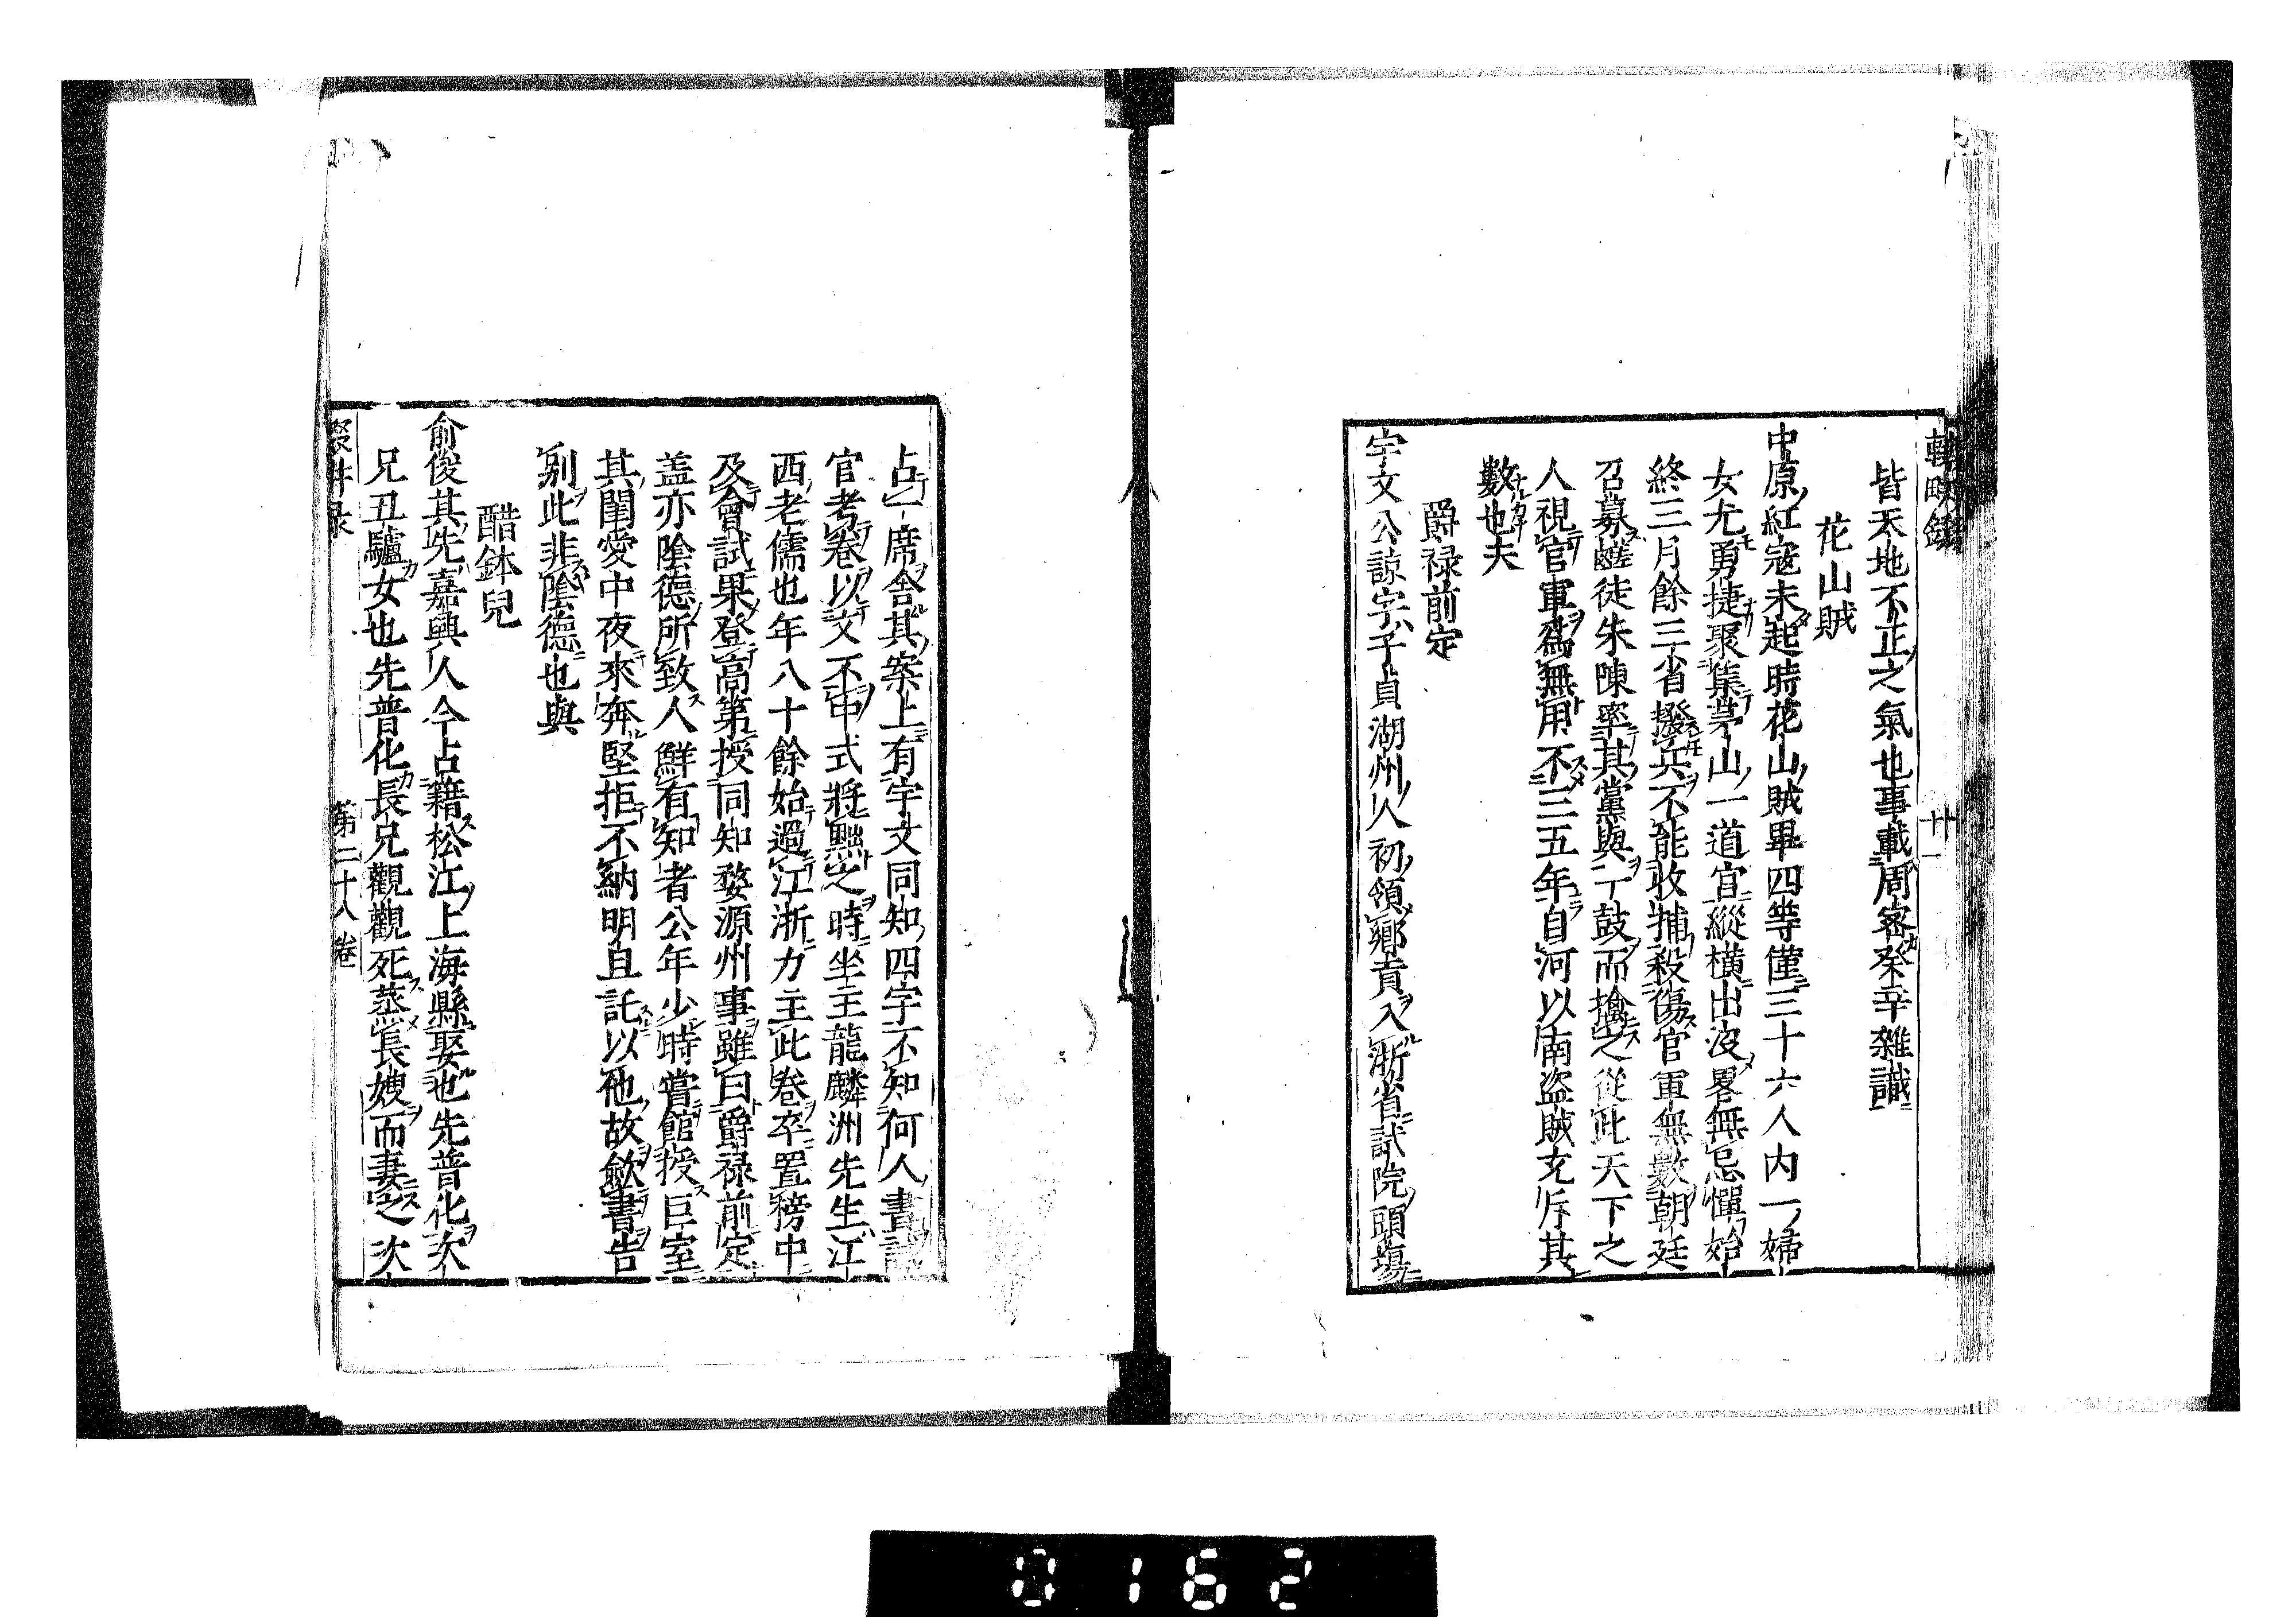 輟畊錄
十一
皆天地不正之氣也事載周密癸辛雜識
花山賊
中原紅寇未起時花山賊畢四等僅三十六人内一婦
女尤勇捷聚集茅山一道宫縱横出没畧無忌憚始
終三月餘三省撥兵不能收捕殺傷官軍無數朝廷
召募鹺徒朱陳率其黨與一鼓而擒之從此天下之
人視官軍爲無用不三五年自河以南盗賊充斥其
數也夫
爵禄前定
宇文公諒字子貞湖州人初領鄉貢入浙省試院頭塲
占一席舍其案上有宇文同知四字不知何人書
官考卷以文不中式將黜之時坐主龍麟洲先生江
西老儒也年八十餘始過江浙力主此卷卒置榜中
及會試果登高第授同知婺源州事雖曰爵禄前定
盖亦陰德所致人鮮有知者公年少時嘗館授巨室
其閨愛中夜來奔堅拒不納明旦託以他故斂書告
别此非陰德也與
醋鉢兒
俞俊其先嘉興人今占籍松江上海縣娶也先普化次
兄丑驢女也先普化長兄觀觀死蒸長嫂而妻之次
第二十八卷